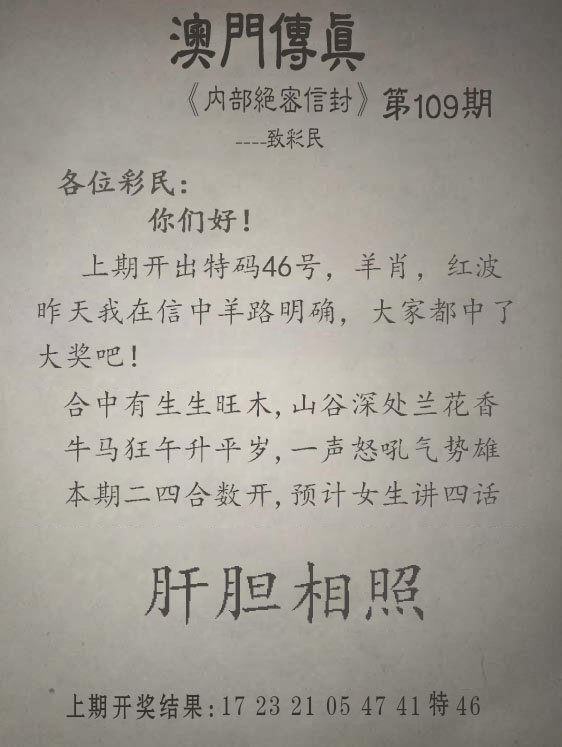 澳門傳真
《内部絕密信封》第109期
----致彩民
各位彩民：
你们好！
上期开出特码46号，羊肖，红波
昨天我在信中羊路明确，大家都中了
大奖吧！
合中有生生旺木,山谷深处兰花香
牛马狂午升平岁,一声怒吼气势雄
本期二四合数开,预计女生讲四话
肝胆相照
上期开奖结果:17 23 21 05 47 41 特 46